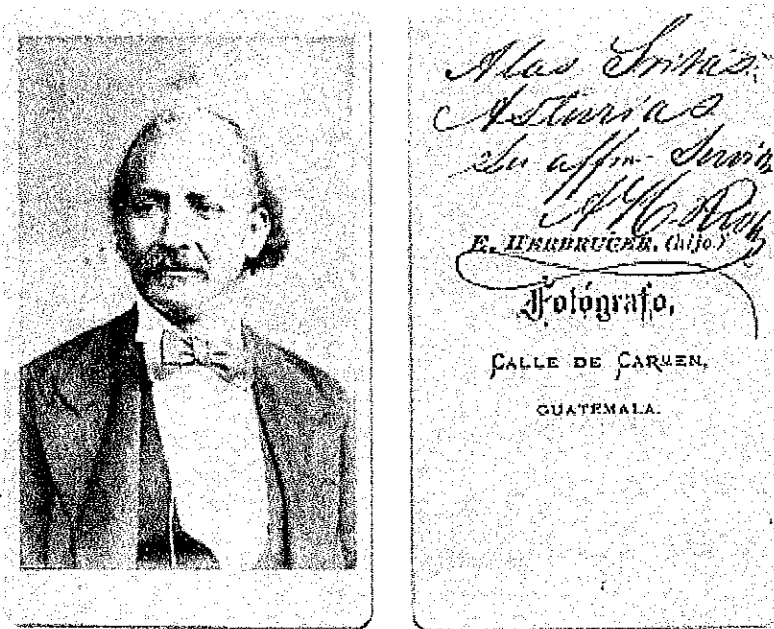 A las Sritas.
Asturias
Su affmo. Servi
E. HERBRUGER, (hijo)
Fotógrafo,
CALLE DE CARMEN,
GUATEMALA.